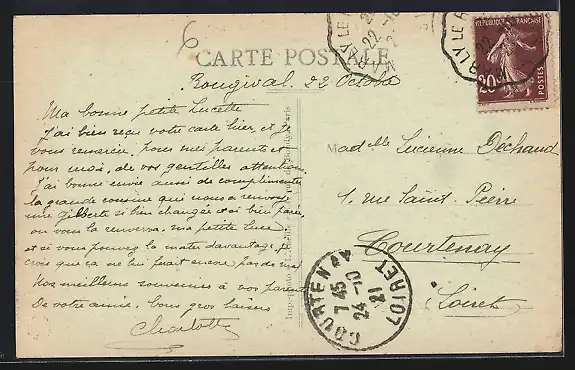 6
CARTE POSTALE
Bougival. 22 Octobre
Ma bonne petite Lucette
J'ai bien reçu votre carte hier, et je
vous remercie, pour mes parents et
pour moi, de vos gentilles attentions.
J'ai bonne envie aussi de complimenter
la grande cousine qui nous a renvoyé
une Gilberte si bien changée et si bien
on vous la renverra, ma petite Luce
et si vous pouvez la mater davantage, je
crois que ça ne lui ferait encore pas de mal
Nos meilleurs souvenirs à vos parents
De votre amie. bons gros baisers
Charlotte
Madelle Lucienne Déchaud
1. rue Saint-Pierre
Courtenay
(Loiret)
REPUBLIQUE FRANÇAISE
20c
POSTES
22
COURTENAY
7 45
24-10
21
LOIRET